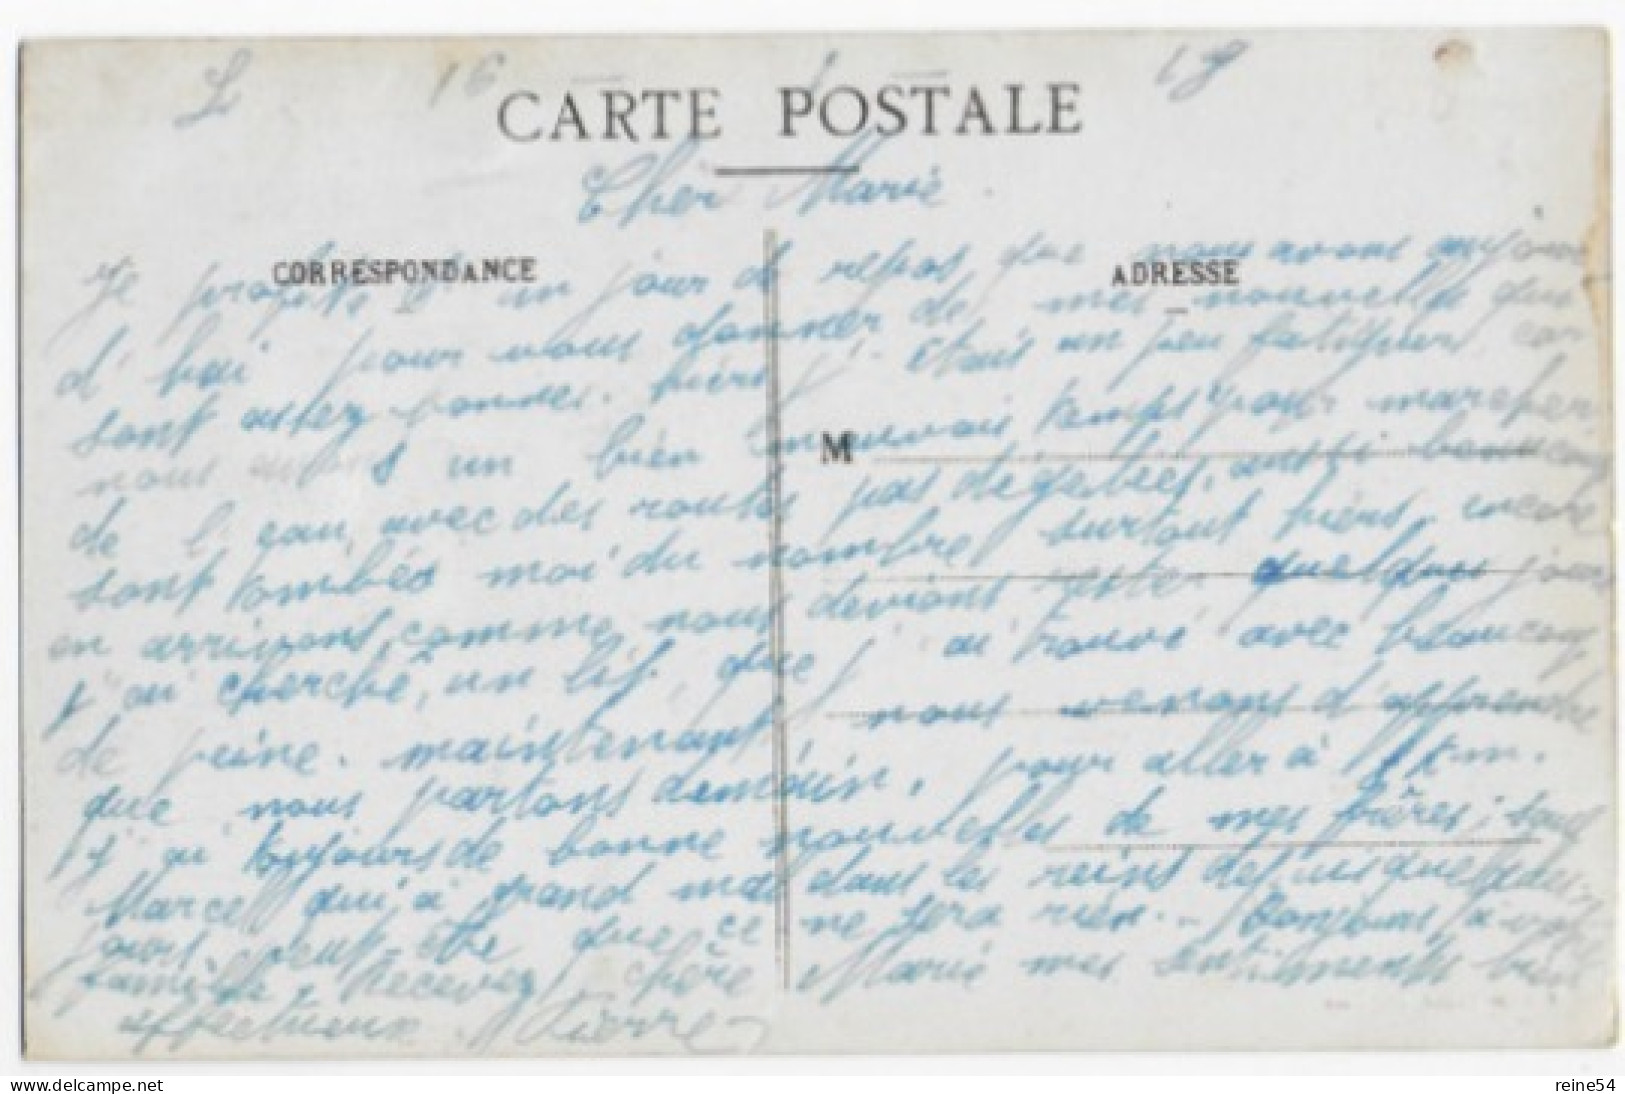 Le 16 1 19
CARTE POSTALE
Cher Marie
CORRESPONDANCE
ADRESSE
M
Je profite d un jour de repos que nous avons aujour
d'hui pour vous donner de mes nouvelles qui
sont assez bonnes. hiers j'étais un peu fatiguer, car
nous avions un bien mauvais temps pour marcher
de l'eau, avec des routes pas dégelées, aussi beaucoup
sont tombés moi du nombre surtout hiers, encore
en arrivant, comme nous devions rester quelques jours
j'ai cherché, un lit, que j'ai trouvé avec beaucoup
de peine. maintenant, nous venons d'apprendre
que nous partons demain, pour aller à km.
j'ai toujours de bonne nouvelles de mes frères; sauf
Marcel qui à grand mal dans les reins depuis quelques
jours, peut-être que ce ne sera rien. - Bonjour à votre
famille Recevez chère Marie mes sentiments bien
affectueux. Pierre
reine54
© delcampe.net